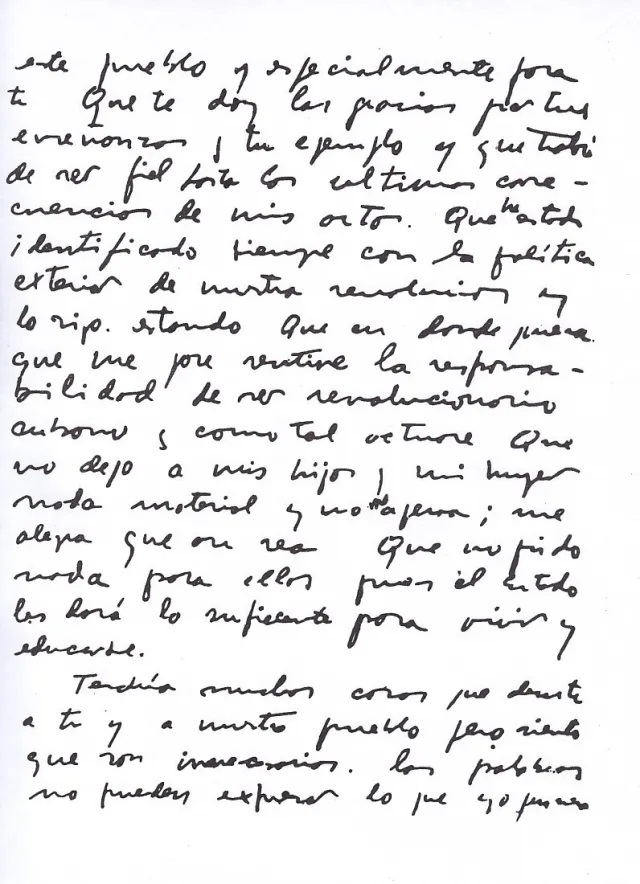 este pueblo y especialmente para
ti Que te doy las gracias por tus
enseñanzas y tu ejemplo y que trataré
de ser fiel hasta las ultimas conse-
cuencias de mis actos. Que he estado
identificado siempre con la política
exterior de nuestra revolucion y
lo sigo estando Que en donde quiera
que me pare sentire la responsa-
bilidad de ser revolucionario
cubano y como tal actuare Que
no dejo a mis hijos y mi mujer
nada material y no me apena; me
alegra que asi sea Que no pido
nada para ellos pues el estado
les dará lo suficiente para vivir y
educarse.
Tendría muchas cosas que decirte
a ti y a nuestro pueblo pero siento
que son innecesarias. las palabras
no pueden expresar lo que yo quisiera